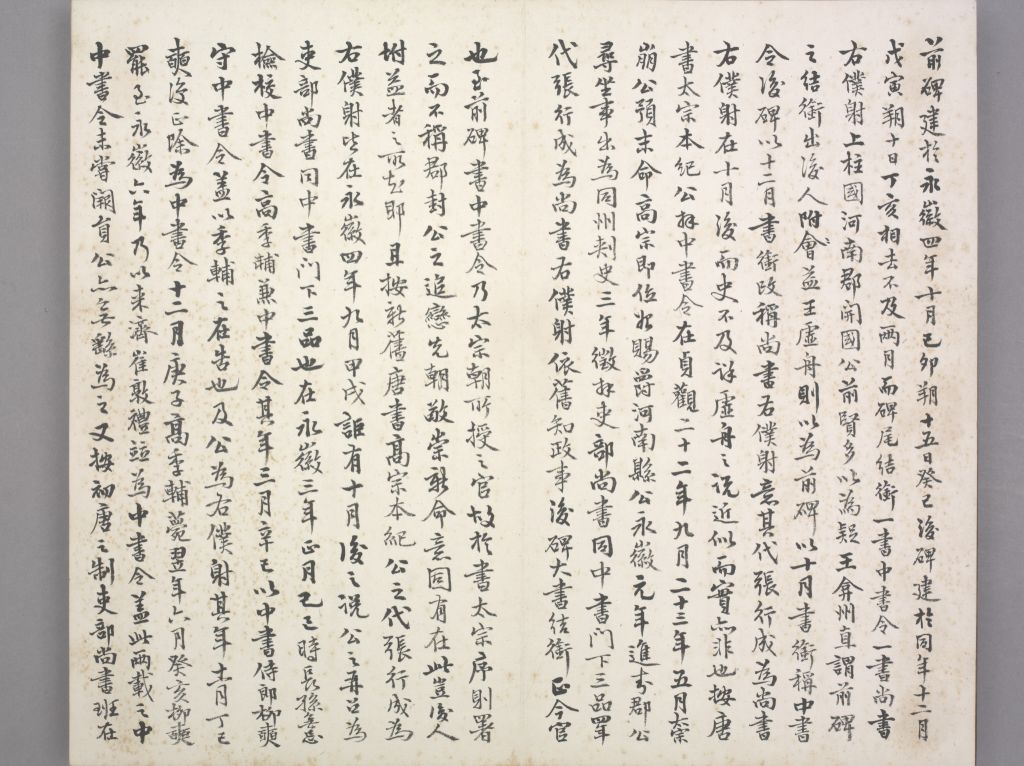 前碑建於永徽四年十月己卯朔十五日癸巳後碑建於同年十二月
戊寅朔十日丁亥相去不及兩月而碑尾結銜一書中書令一書尚書
右僕射上柱國河南郡開國公前賢多以為疑王弇州直謂前碑
之結銜出後人附會益王虛舟則以為前碑以十月書銜稱中書
令後碑以十二月書銜改稱尚書右僕射意其代張行成為尚書
右僕射在十月後而史不及詳虛舟之說近似而實亦非也按唐
書太宗本紀公拜中書令在貞觀二十二年九月二十三年五月太宗
崩公預末命高宗即位始賜爵河南縣公永徽元年進書郡公
尋坐事出為同州刺史三年徵拜吏部尚書同中書門下三品四年
代張行成為尚書右僕射依舊知政事後碑大書結銜正今官
也至前碑書中書令乃太宗朝所授之官故於書太宗序則署
之而不稱郡封公之追戀先朝敬崇新命意同有在此豈後人
坿益者之所知耶且按新舊唐書高宗本紀公之代張行成為
右僕射皆在永徽四年九月甲戌詎有十月後之說公之再召為
吏部尚書同中書門下三品也在永徽三年正月己巳時長孫無忌
檢校中書令高季輔兼中書令其年三月辛巳以中書侍郎柳奭
守中書令蓋以季輔之在告也及公為右僕射其年十一月丁巳
奭後正除為中書令十二月庚子高季輔薨翌年六月癸亥柳奭
罷至永徽六年乃以來濟崔敦禮竝為中書令蓋此兩載之中
中書令未嘗闕員公亦無繇為之又按初唐之制吏部尚書班在